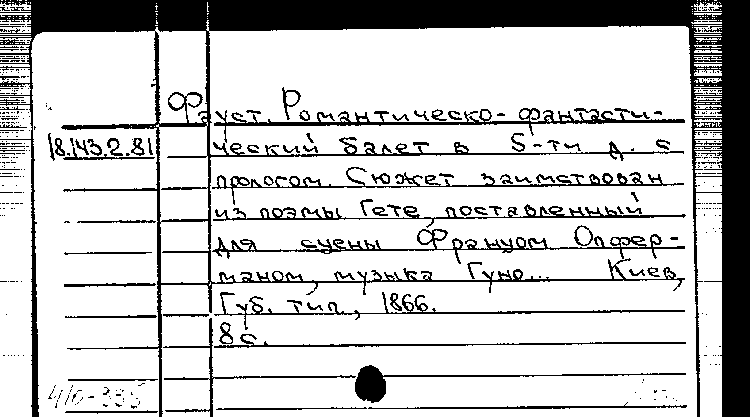 Фауст. Романтическо-фантасти-
18.143.2.81 ческий балет в 5-ти д. с
прологом. Сюжет заимствован
из поэмы Гете, поставленный
для сцены Францом Опфер-
маном, музыка Гуно... Киев,
Губ. тип., 1866.
8 с.
410-335